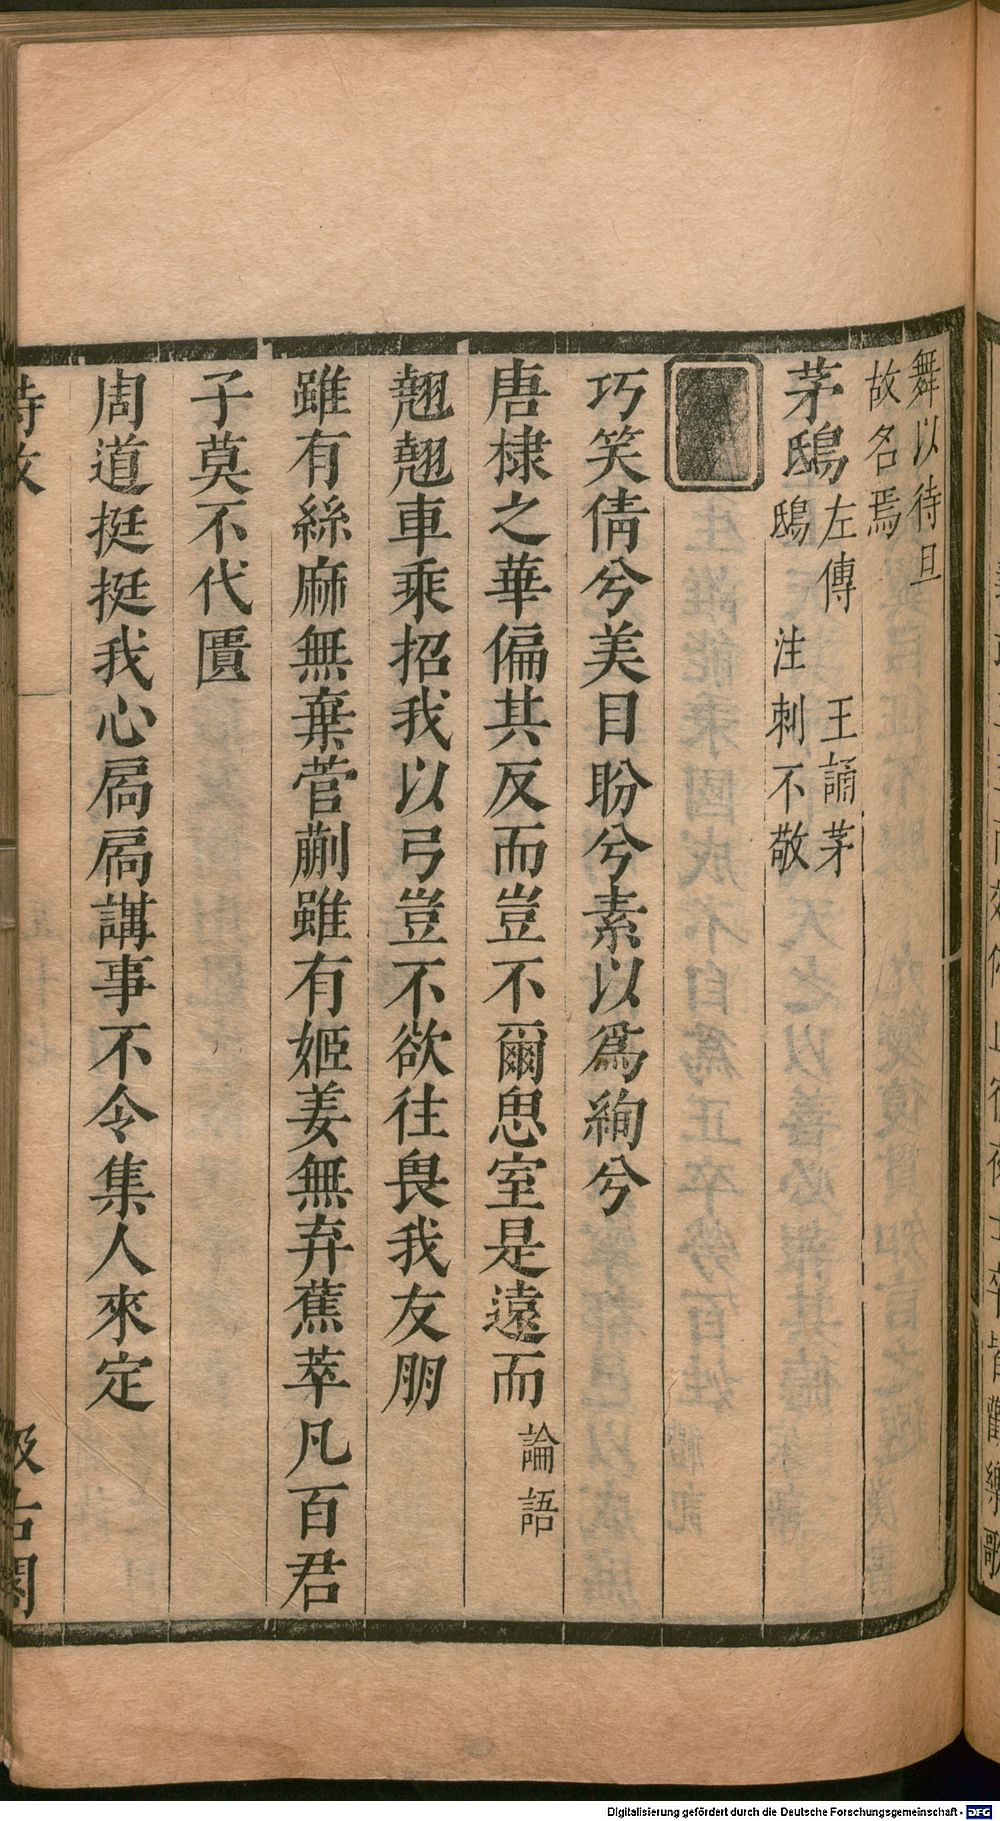 舞以待旦
故名焉
茅鴟左傳 王誦茅
鴟 注刺不敬
巧笑倩兮美目盼兮素以爲絢兮
唐棣之華偏其反而豈不爾思室是遠而論語
翹翹車乘招我以弓豈不欲往畏我友朋
雖有絲麻無棄菅蒯雖有姬姜無弃蕉萃凡百君
子莫不代匱
周道挺挺我心扃扃講事不令集人來定
詩攷
汲古閣
Digitalisierung gefördert durch die Deutsche Forschungsgemeinschaft - DFG